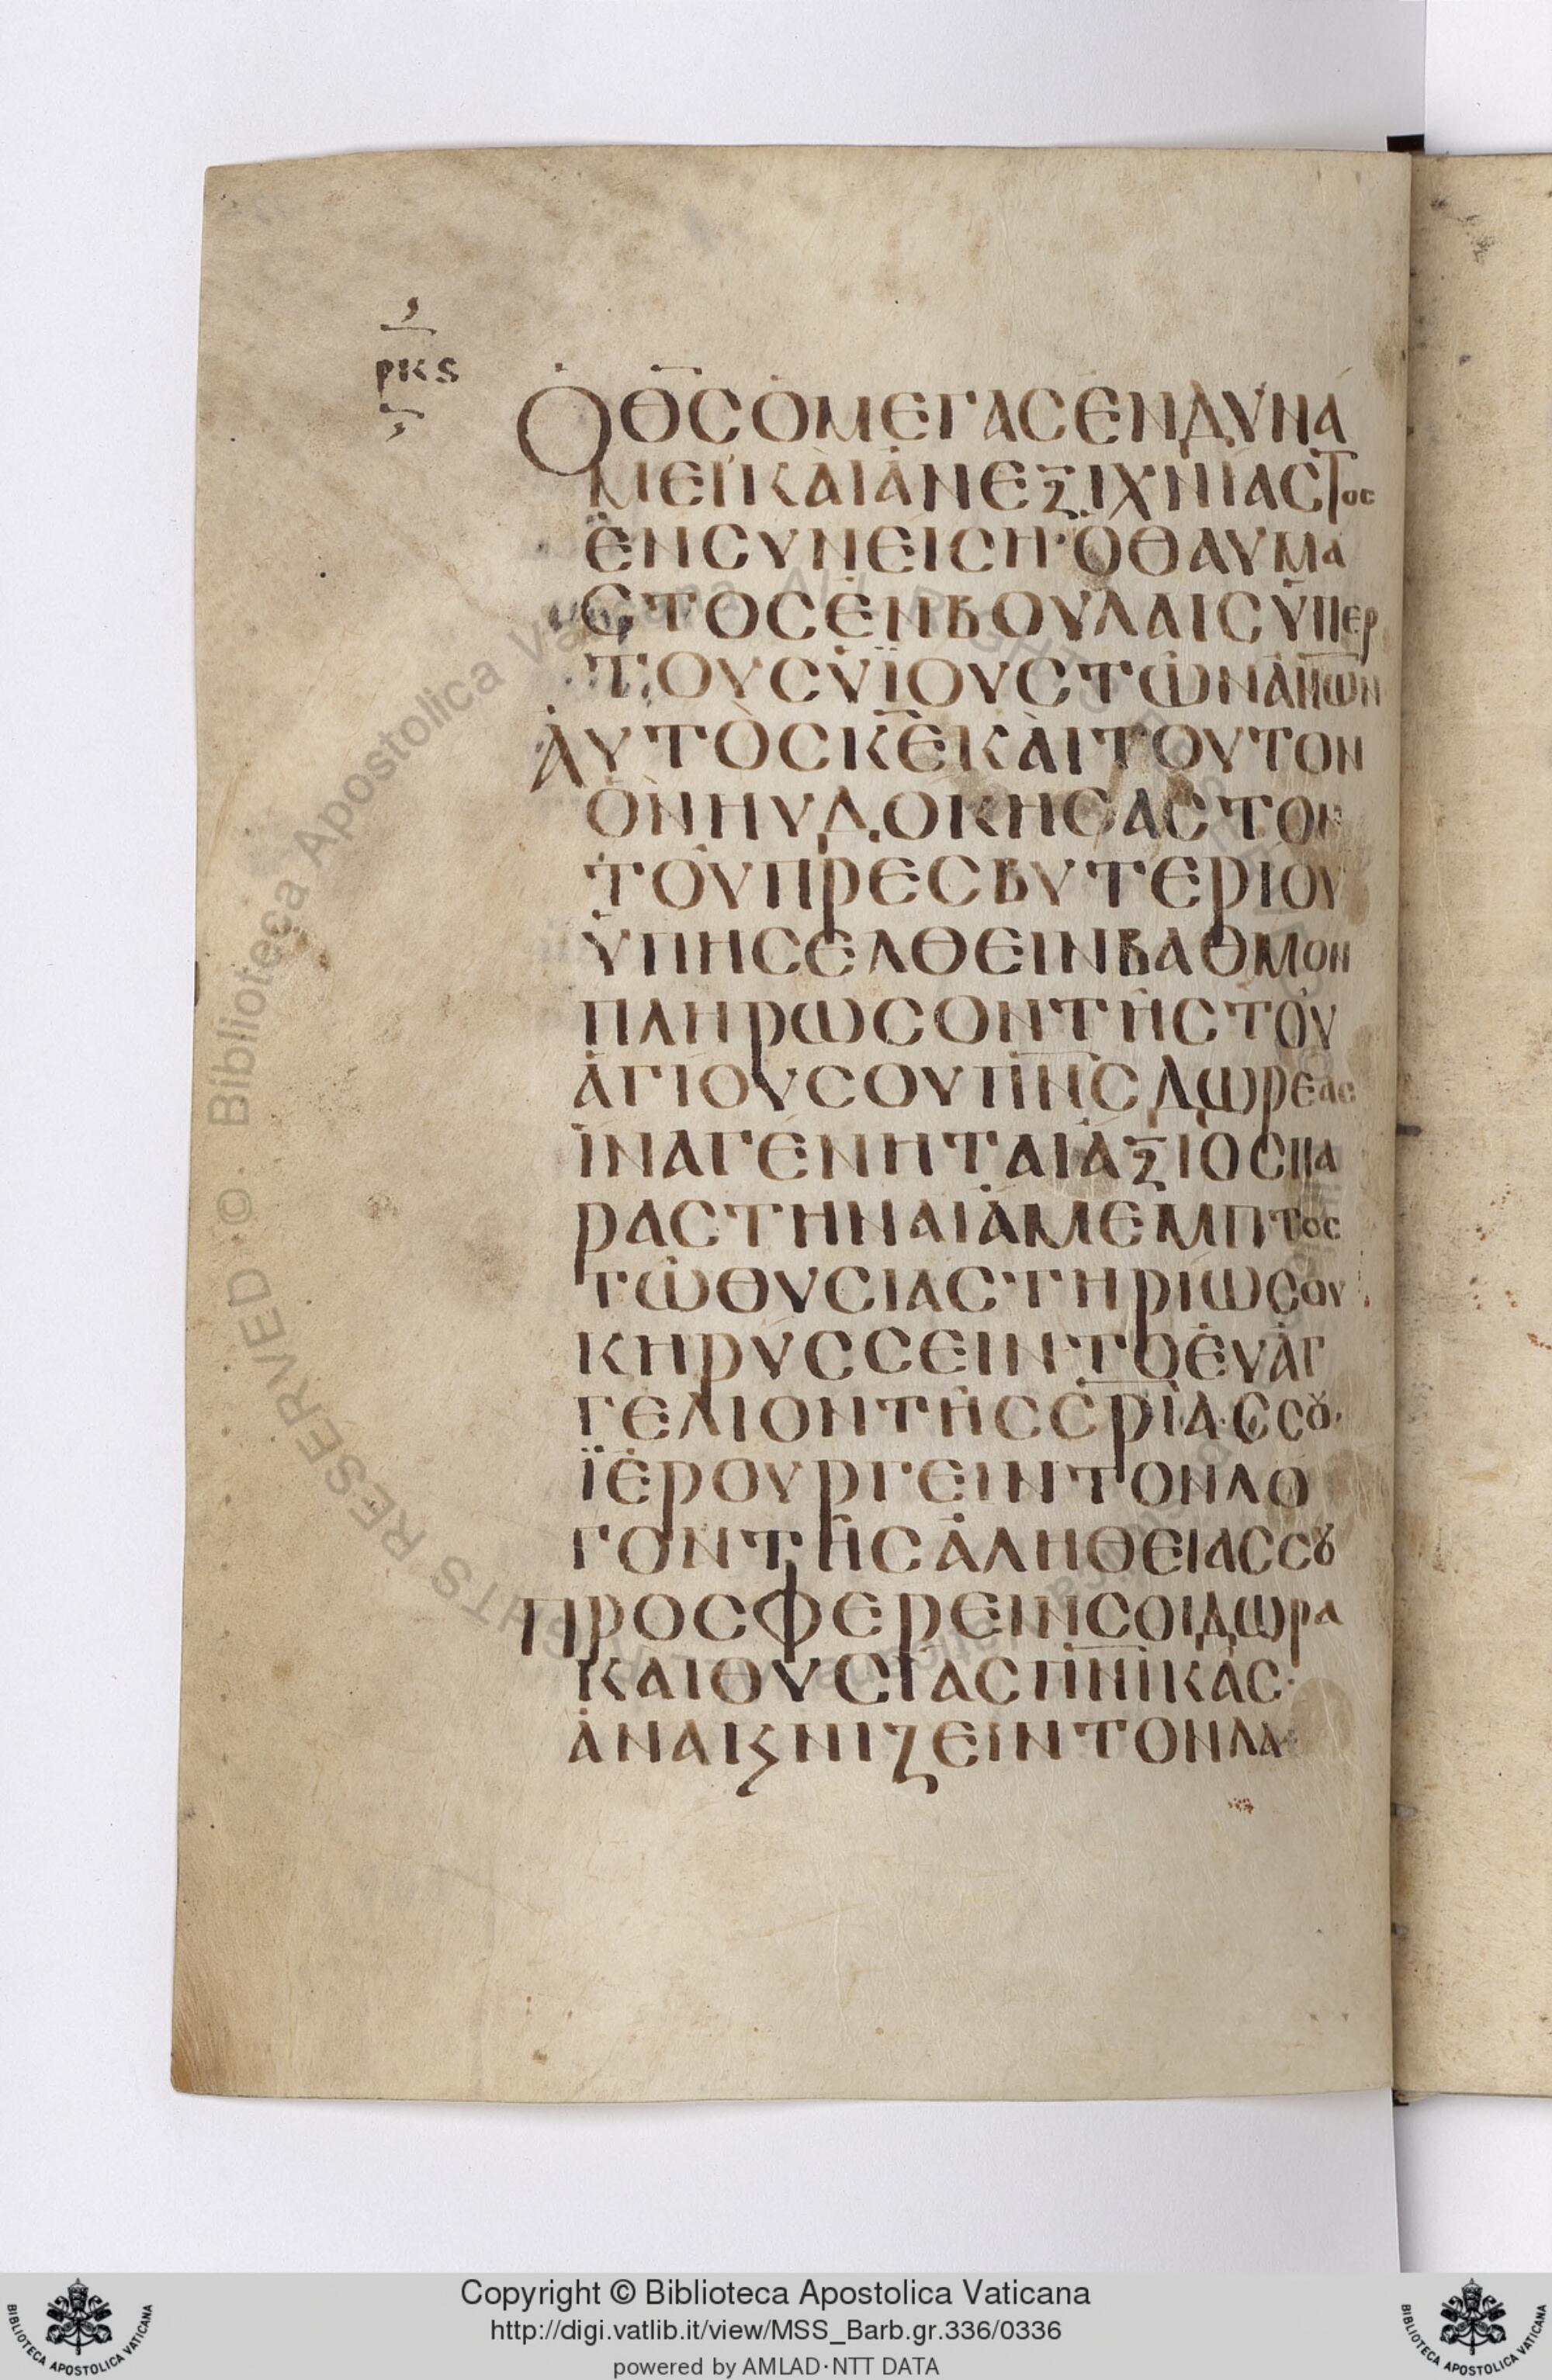 ρκϛ
ὉΘ̅Ϲ̅ὉΜΕΓΑϹἘΝΔΥΝΆ
ΜΕΙΚΑῚἈΝΕΞΙΧΝΊΑϹΤΟϹ
ἘΝϹΥΝΕΙϹΗ·ὉΘΑΥΜΑ
ϹΤΟϹἘΝΒΟΥΛΑΙϹὙΠΕΡ
ΤΟΥϹΥἹΟΥϹΤΩ͂ΝΑ̅Ν̅ΩΝ
ἈΥΤῸϹΚ̅Ε̅ΚΑῚΤΟΥΤΟΝ
ὋΝΗΥΔΟΚΗϹΑϹΤΟΝ
ΤΟΥΠΡΕϹΒΥΤΕΡΙΟΥ
ὙΠΗϹΕΛΘΕΙΝΒΑΘΜΟΝ
ΠΛΗΡΩϹΟΝΤΗϹΤΟΥ
ἉΓΙΟΥϹΟΥΠ̅Ν̅Ϲ̅ΔΩΡΕΑϹ
ΪΝΑΓΕΝΗΤΑΙἈΞΙΟϹΠΑ
ΡΑϹΤΗΝΑΙἈΜΕΜΠΤΟϹ
ΤΩΘΥϹΙΑϹΤΗΡΙΩϹΟΥ
ΚΗΡΥϹϹΕΙΝΤΟἘΥΑΓ
ΓΕΛΙΟΝΤΗϹϹ̅Ρ̅Ι̅ΑϹϹȣ·
ΪΕΡΟΥΡΓΕΙΝΤΟΝΛΟ
ΓΟΝΤΗϹἈΛΗΘΕΙΑϹϹȣ
ΠΡΟϹΦΕΡΕΙΝϹΟΙΔΩΡΑ
ΚΑΙΘΥϹΙΑϹΠ̅Ν̅Ι̅ΚΑϹ·
ἈΝΑΚϗΝΙΖΕΙΝΤΟΝΛΑ
Copyright © Biblioteca Apostolica Vaticana
http://digi.vatlib.it/view/MSS_Barb.gr.336/0336
powered by AMLAD·NTT DATA
BIBLIOTECA APOSTOLICA VATICANA
BIBLIOTECA APOSTOLICA VATICANA